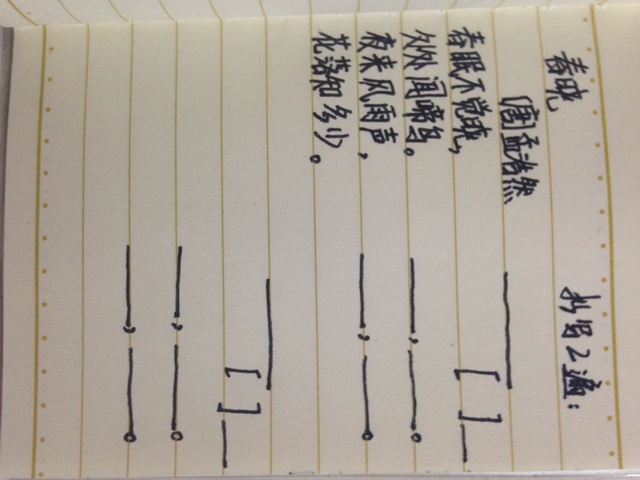 春晓
[唐]孟浩然
春眠不觉晓,
处处闻啼鸟。
夜来风雨声,
花落知多少。
抄写2遍:
[ ]
, 。
, 。
[ ]
, 。
, 。